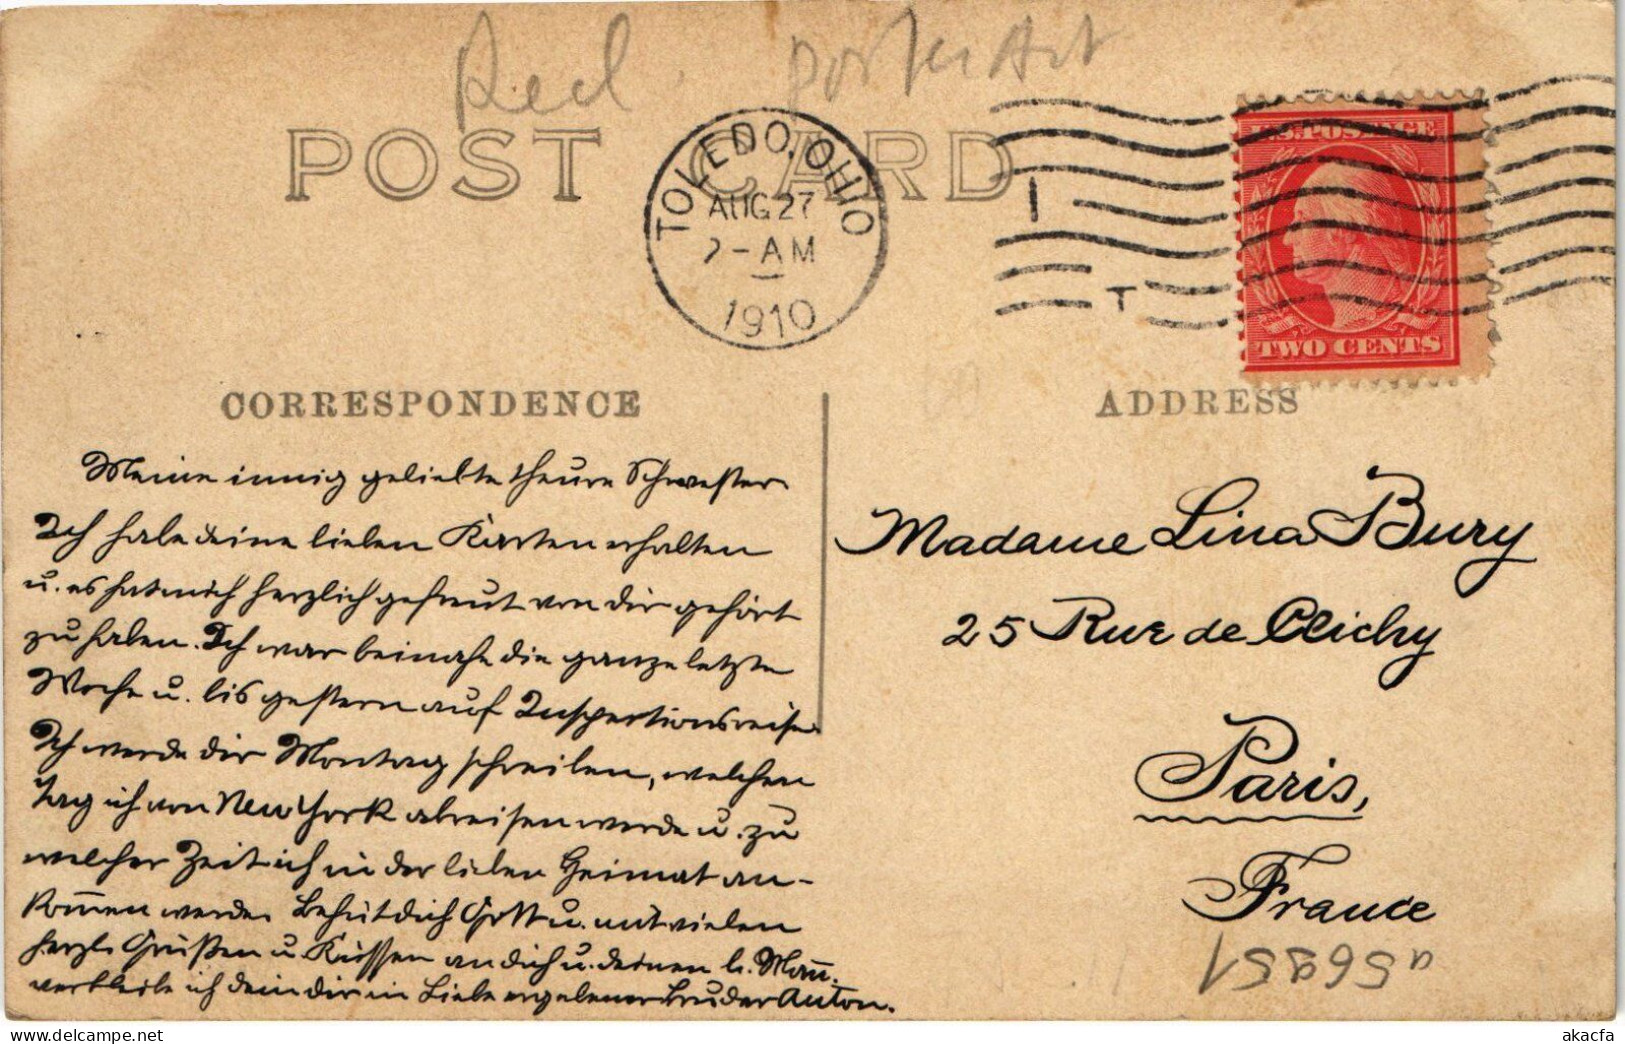 Red. posterArt
POST CARD
TOLEDO, OHIO
AUG 27
7-AM
1910
U.S. POSTAGE
TWO CENTS
CORRESPONDENCE
ADDRESS
Meine innig geliebte theure Schwester
Ich habe deine lieben Karten erhalten
u. es hat mich herzlich gefreut von dir gehört
zu haben. Ich war beinahe die ganze letzte
Woche u. bis gestern auf Inspectionsreise.
Ich werde dir Montag schreiben, welchen
Tag ich von New York abreisen werde u. zu
welcher Zeit ich in der lieben Heimat an-
kom̅en werde. Behüt dich Gott u. mit vielen
herzl. Grüßen u. Küssen an dich u. deinen l. Man̅.
verbleibe ich dein dir in Liebe ergebener Bruder Anton.
Madame Lina Bury
25 Rue de Clichy
Paris,
France
a56951
akacfa